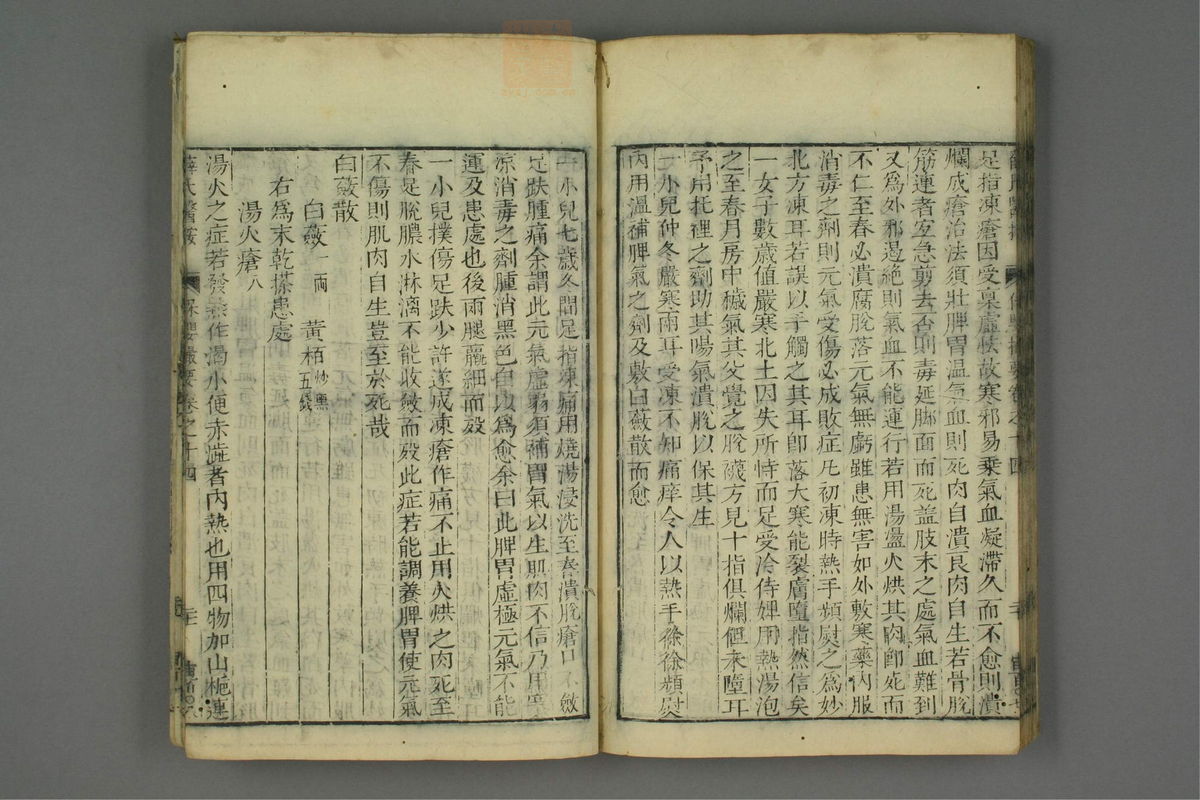 足指凍瘡因受稟虛怯故寒邪易乘氣血凝滯久而不愈則潰
爛成瘡治法須壯脾胃溫氣血則死肉自潰良肉自生若骨脫
筋連者宜急剪去否則毒延腳面而死蓋肢末之處氣血難到
又為外邪遏絕則氣血不能運行若用湯盪火烘其肉卽死而
不仁至春必潰腐脫落元氣無虧雖患無害如外敷寒藥內服
消毒之劑則元氣受傷必成敗症凡初凍時熱手頻熨之為妙
北方凍耳若誤以手觸之其耳卽落大寒能裂膚墮指然信矣
一女子數歲值嚴寒北上因失所恃而足受冷侍婢用熱湯泡
之至春月房中穢氣其父覺之脫襪方見十指俱爛但未墮耳
予用托裡之劑助其陽氣潰脫以保其生
一小兒仲冬嚴寒兩耳受凍不知痛痒令人以熱手徐徐頻熨
內用溫補脾氣之劑及敷白蘞散而愈
一小兒七歲冬間足指凍痛用燒湯浸洗至春潰脫瘡口不斂
足趺腫痛余謂此元氣虛弱須補胃氣以生肌肉不信乃用寒
涼消毒之劑腫消黑色自以為愈余曰此脾胃虛極元氣不能
運及患處也後兩腿麤細而歿
一小兒撲傷足趺少許遂成凍瘡作痛不止用火烘之肉死至
春足脫膿水淋漓不能收斂而歿此症若能調養脾胃使元氣
不傷則肌肉自生豈至於死哉
白蘞散
白蘞一兩 黃栢炒黑五錢
右為末乾搽患處
湯火瘡八
湯火之症若發熱作渴小便赤澁者內熱也用四物加山梔連
薛氏醫案 保嬰撮要卷之十四